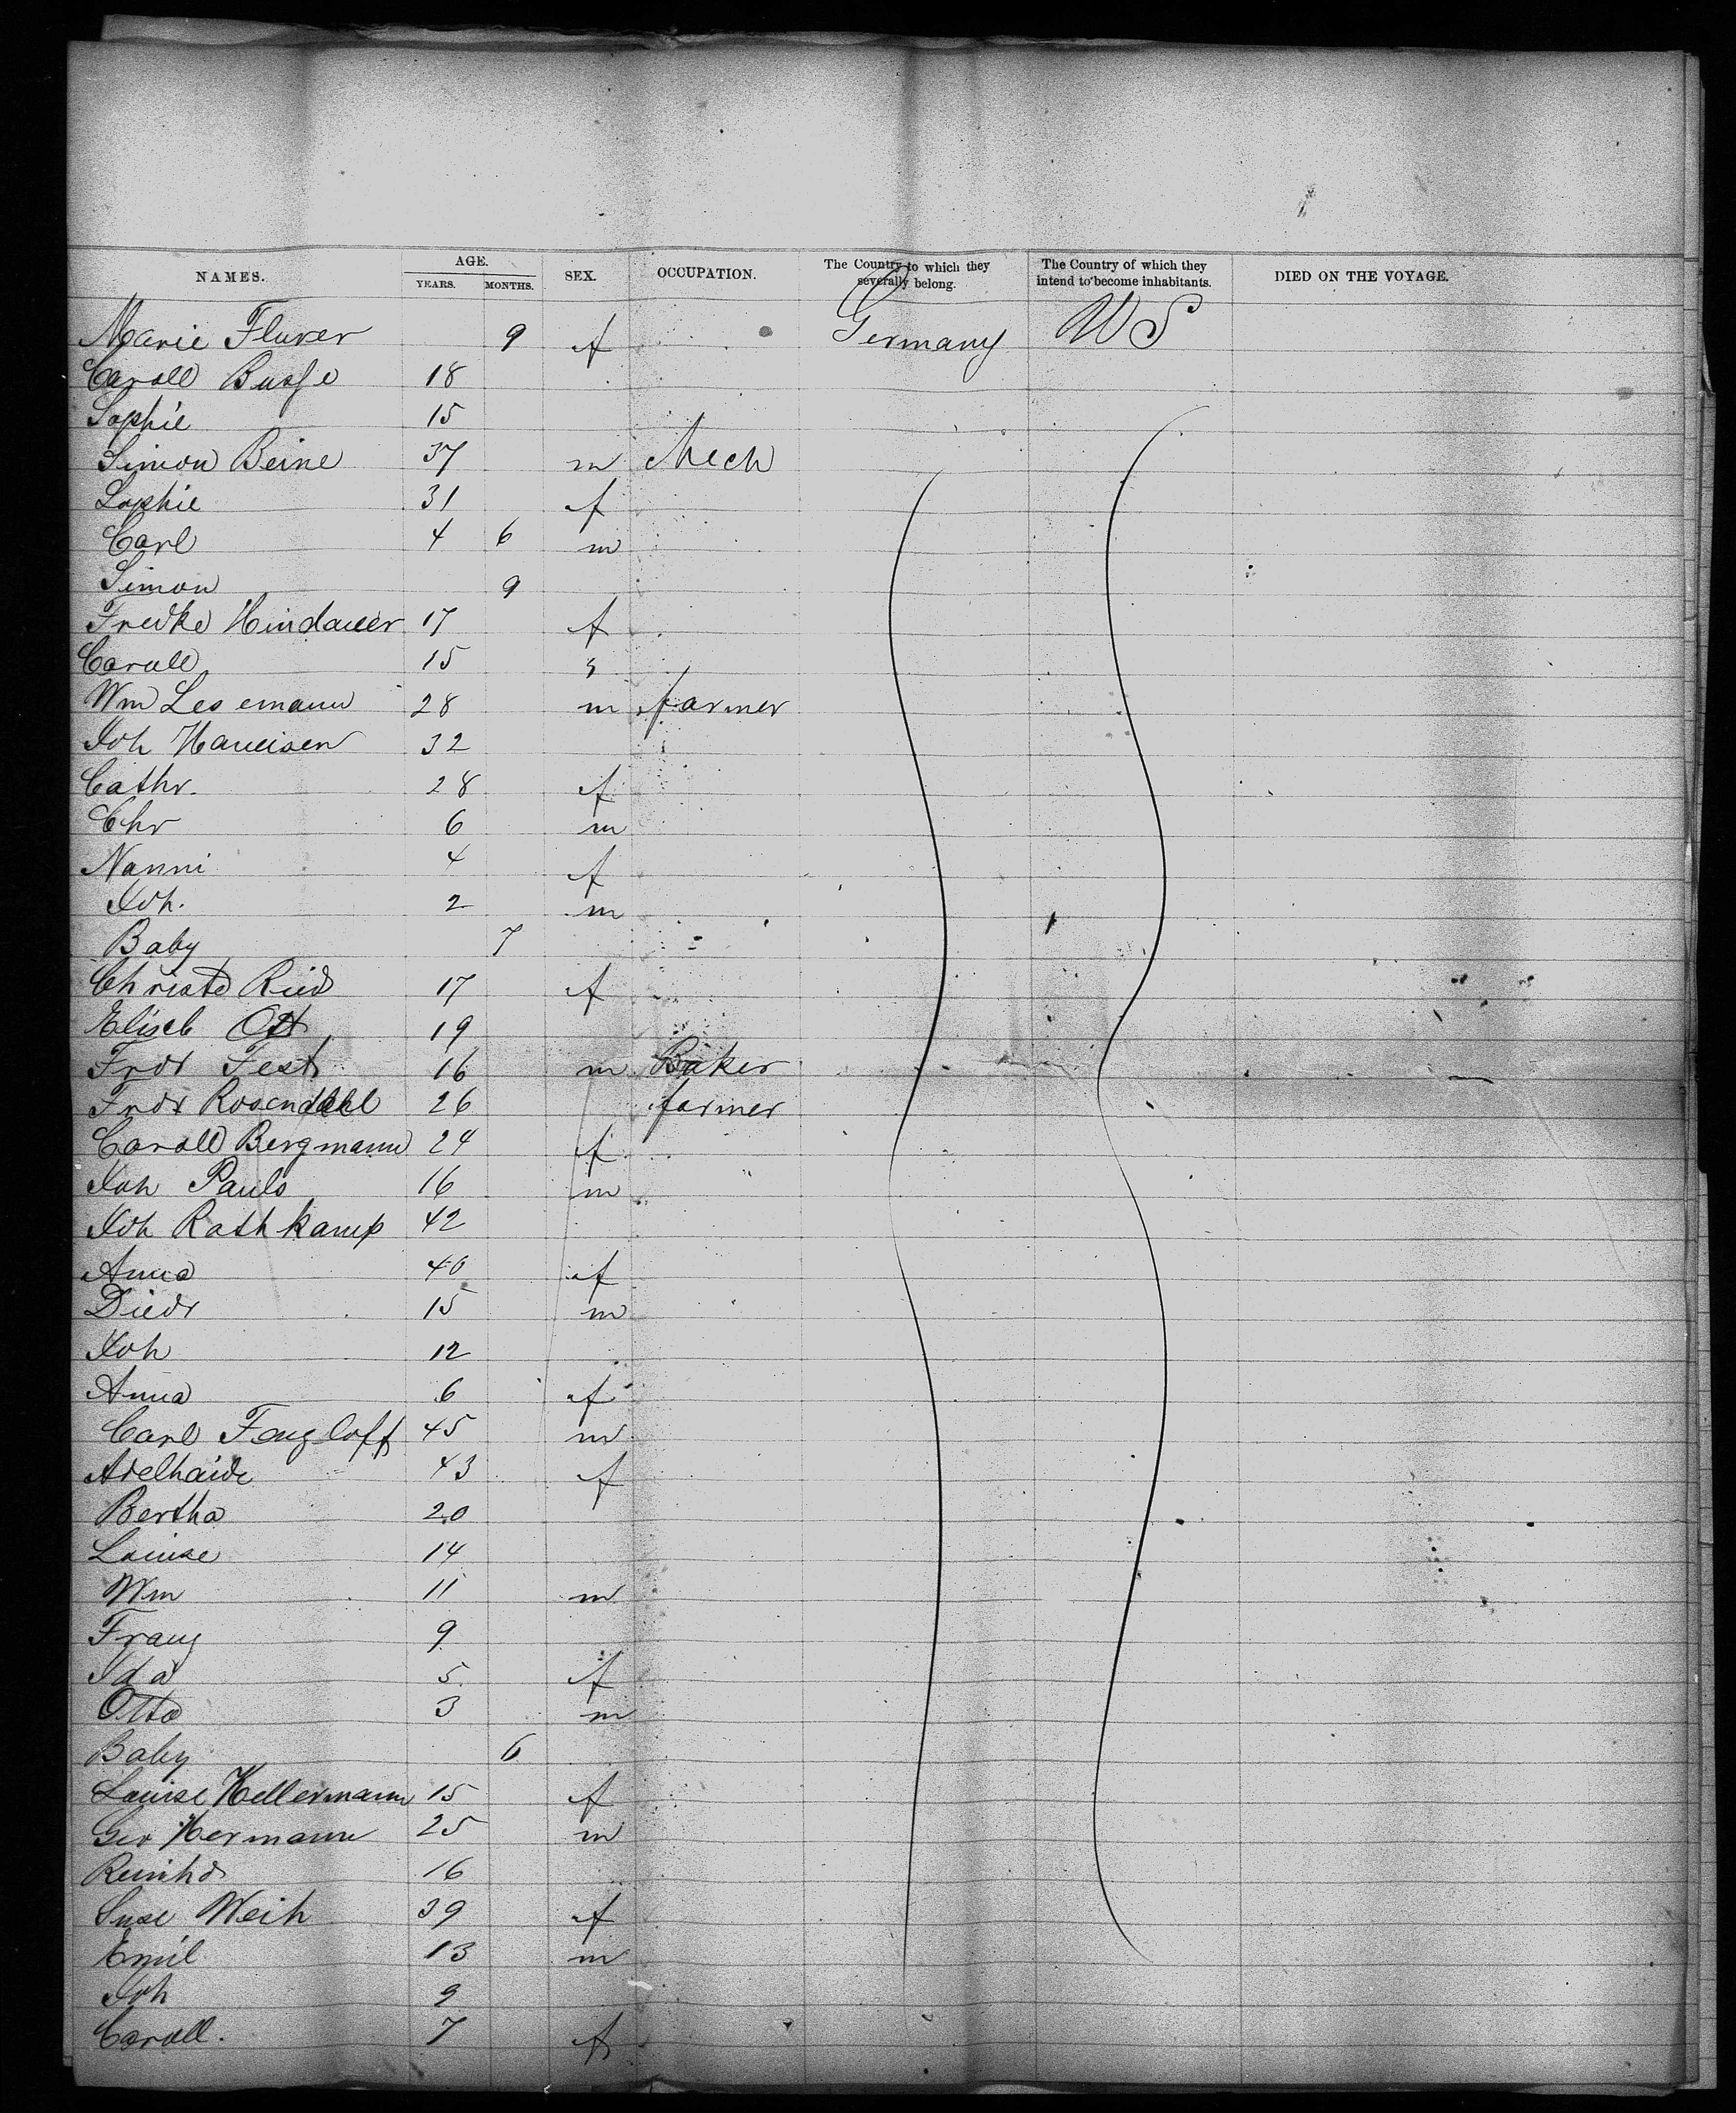 NAMES. AGE. YEARS. MONTHS. SEX. OCCUPATION. The Country to which they severally belong. The Country of which they intend to become inhabitants. DIED ON THE VOYAGE.
Marie Fluver 9 f Germany US
Caroll Busse 18
Sophie 15
Simon Beine 37 m Mech
Sophie 31 f
Carl 4 6 m
Simon 9
Fredke Hindauer 17 f
Caroll 15 "
Wm Lesemann 28 m farmer
Joh Haueisen 32
Cathr. 28 f
Chr 6 m
Nanni 4 f
Joh. 2 m
Baby 7
Christe Ried 17 f
Eliseb Ott 19
Frdr Fest 16 m Baker
Frdr Rosendahl 26 farmer
Caroll Bergmann 24 f
Joh Pauls 16 m
Joh Rathkamp 42
Anna 40 f
Diedr 15 m
Joh 12
Anna 6 f
Carl 45 m
Adelhaide 43 f
Bertha 20
Louise 14
Wm 11 m
Franz 9
Ida 5 f
Otto 3 m
Baby 6
Louise Kellermann 15 f
Geo Hermann 25 m
Reinhd 16
Suse Weih 39 f
Emil 13 m
Joh 9
Caroll. 7 f